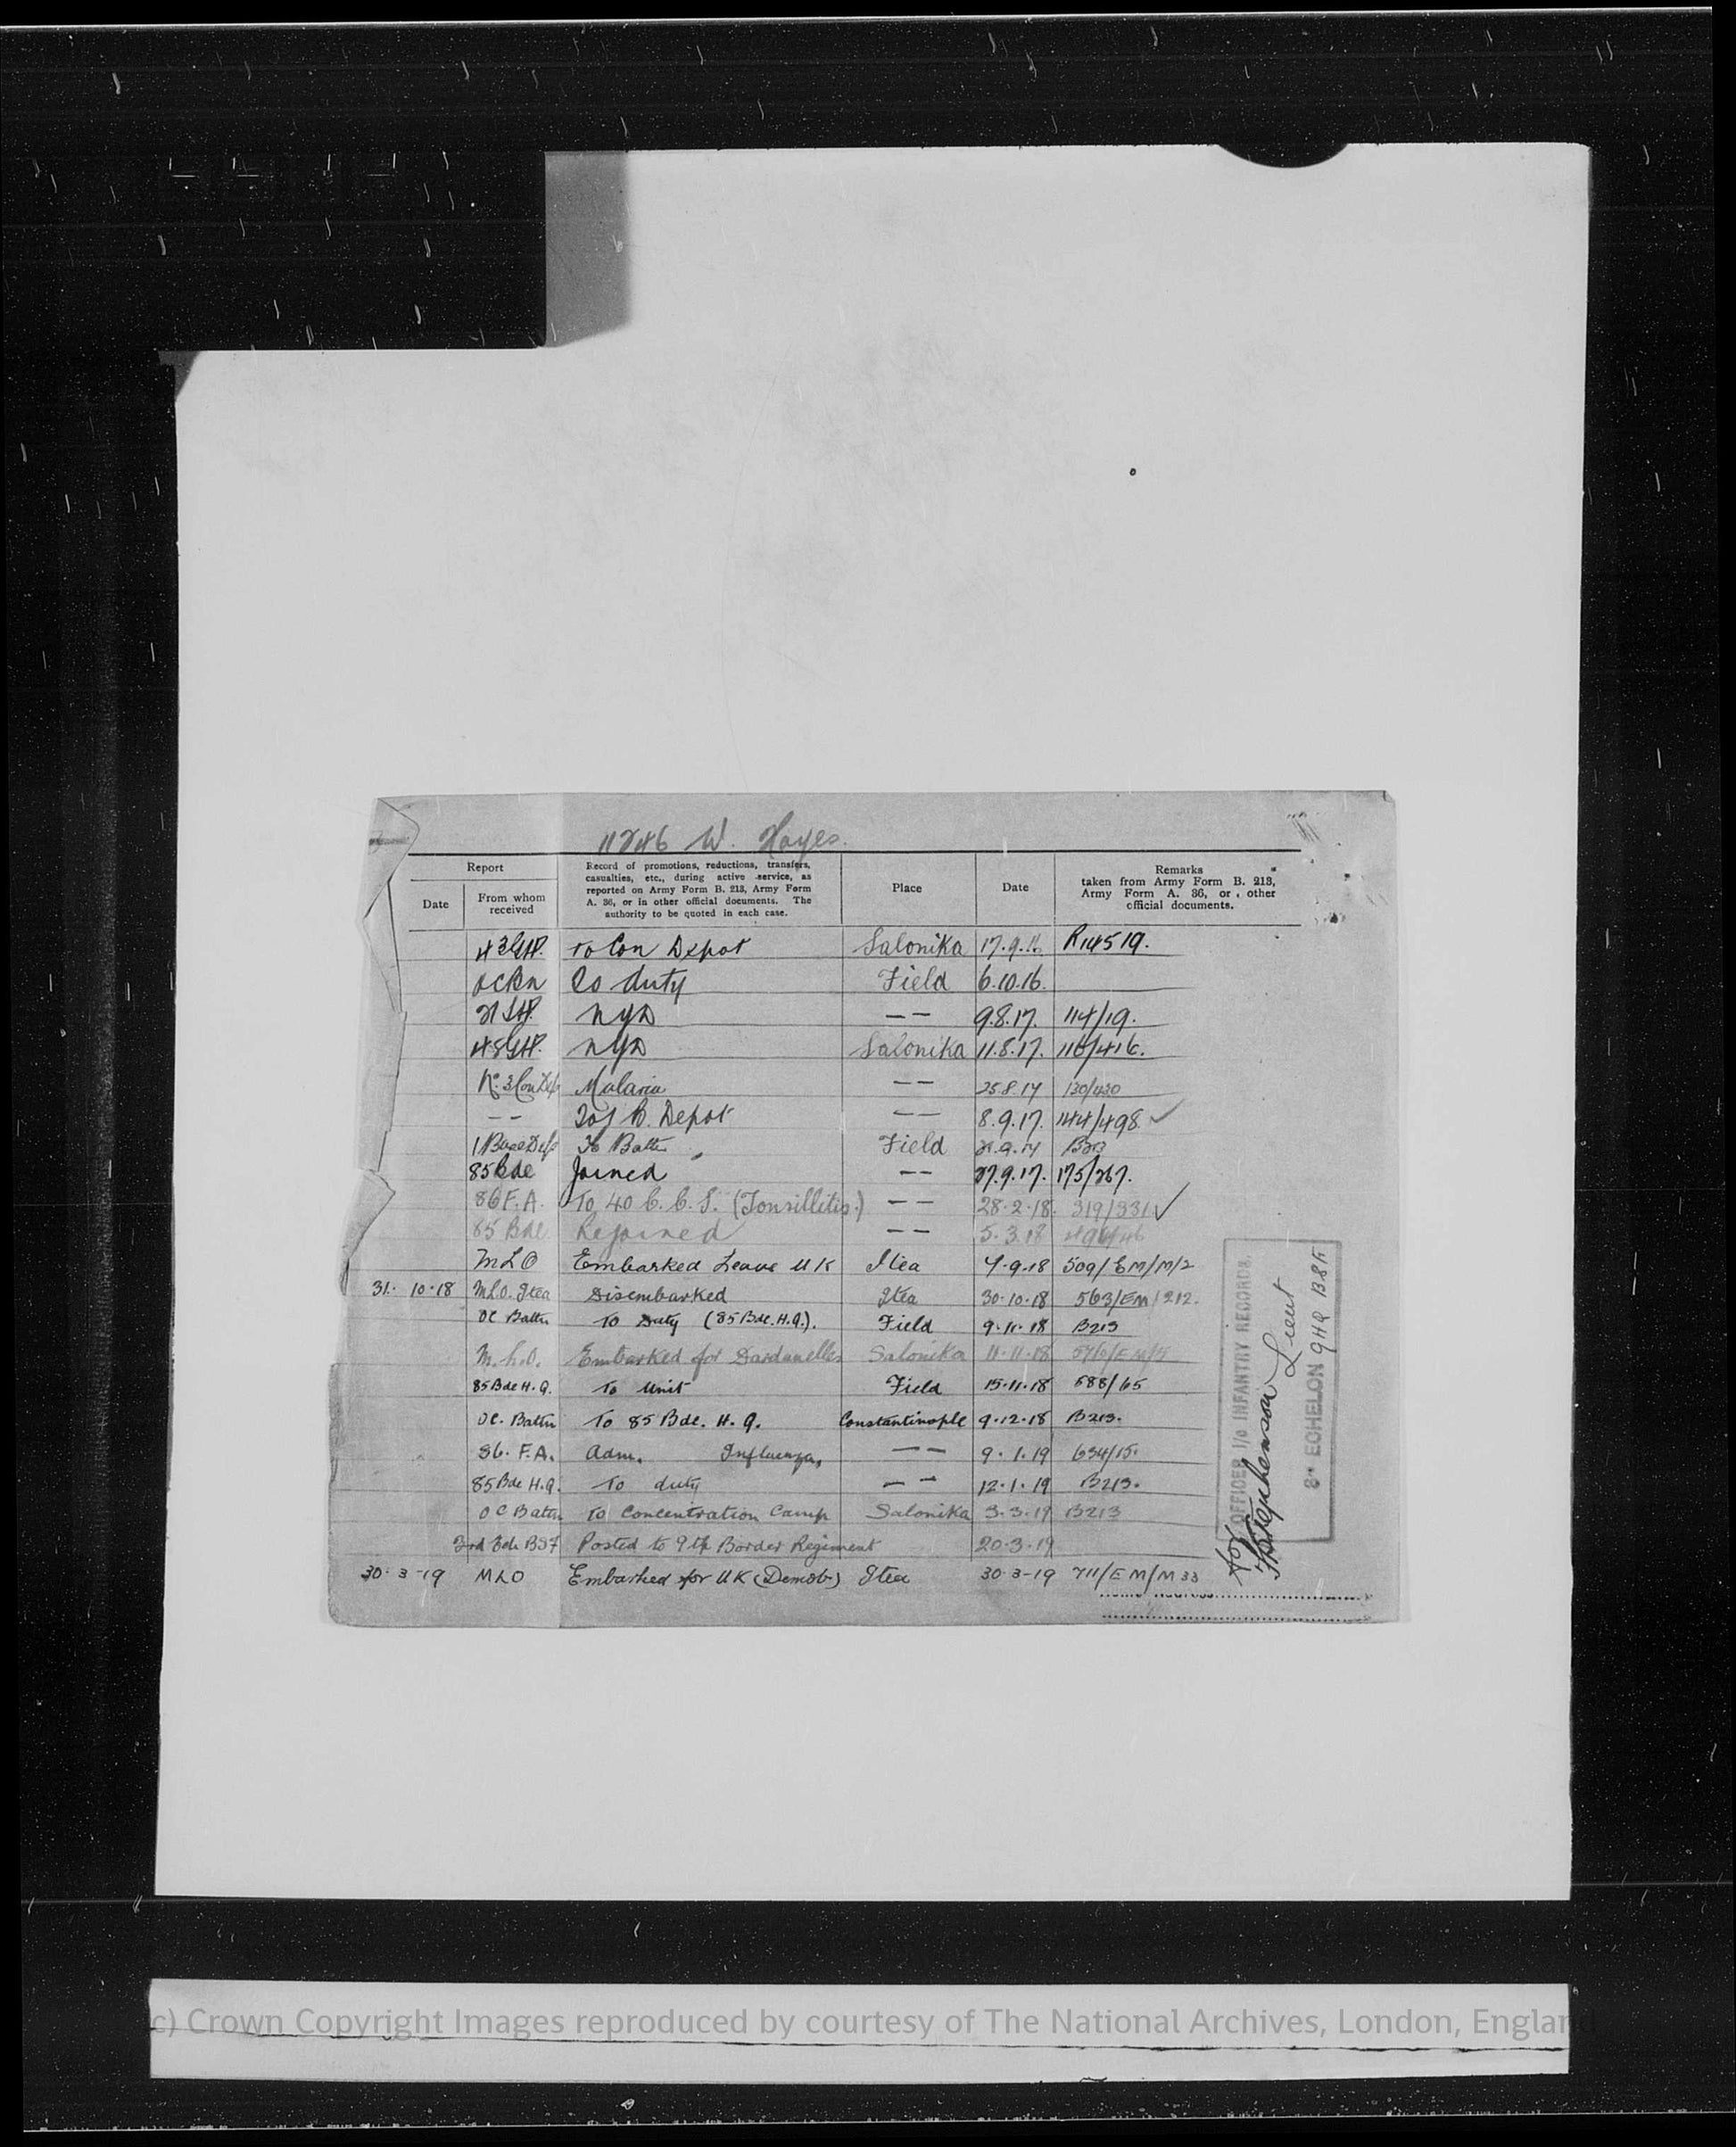 W. Hayes.
Report
Date
From whom received
Record of promotions, reductions, transfers,
casualties, etc., during active service, as
reported on Army Form B. 213, Army Form
A. 36, or in other official documents. The
authority to be quoted in each case.
Place
Date
Remarks
taken from Army Form B. 213,
Army Form A. 36, or other
official documents.
To Con Depot Salonika 17.9.16 R14519.
OCBn To duty Field 6.10.16.
NYD — — 9.8.17. 114/19.
NYD Salonika 11.8.17. 116/416.
No. 3 Con Dep Malaria — — 25.8.17 130/430
— — B. Depot — — 8.9.17. 144/498
1 Base Dep To Battn Field B213
85 Bde Joined — — 27.9.17. 175/267.
86 F.A. To 40 C.C.S. (Tonsillitis.) — — 28.2.18. 319/331
85 Bde Rejoined — — 5.3.18
MLO Embarked Leave UK Itea 7.9.18 509/EM/M/2
31.10.18 M.L.O. Itea Disembarked Itea 30.10.18 563/EM/212.
OC Battn To Duty (85 Bde. H.Q.). Field 9.11.18 B213
M.L.O. Embarked for Dardanelles Salonika 11.11.18
85 Bde H.Q. To Unit Field 15.11.18 588/65
OC. Battn To 85 Bde. H.Q. Constantinople 9.12.18 B213.
86. F.A. Adm. Influenza, — — 9.1.19 634/15.
85 Bde H.Q. To duty — — 12.1.19 B213.
OC Battn To Concentration Camp Salonika 3.3.19 B213
Posted to 9th Border Regiment 20.3.19
30.3-19 MLO Embarked for UK (Demob) Itea 30.3-19 711/EM/M33
for Stephenson Lieut
OFFICER I/c INFANTRY RECORDS,
ECHELON GHQ BSF
(c) Crown Copyright Images reproduced by courtesy of The National Archives, London, England